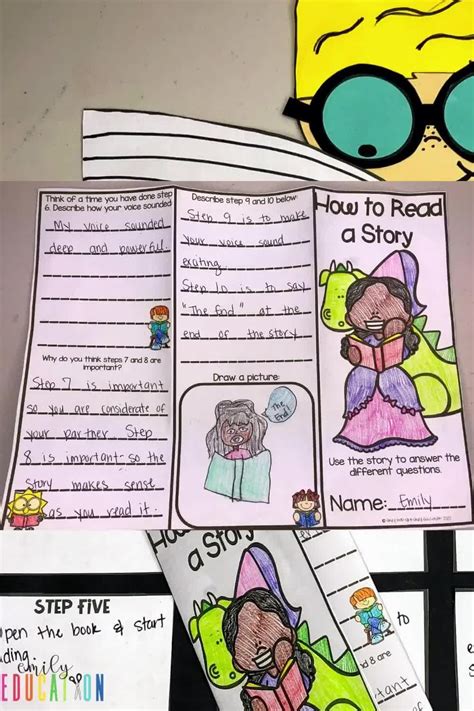 Think of a time you have done step
6. Describe how your voice sounded
My voice sounded
deep and powerful.
Why do you think steps 7 and 8 are
important?
Step 7 is important
so you are considerate of
your partner Step
8 is important so the
story makes sense
as you read it.
Describe step 9 and 10 below:
Step 9 is to make
your voice sound
exciting.
Step 10 is to say
"The End" at the
end of the story
Draw a picture:
The
End!
How to Read
a Story
Use the story to answer the
different questions.
Name: Emily
How to
a Story
STEP FIVE
open the book & start
ding.
to
d 8 are
tant
emily
EDUCATION